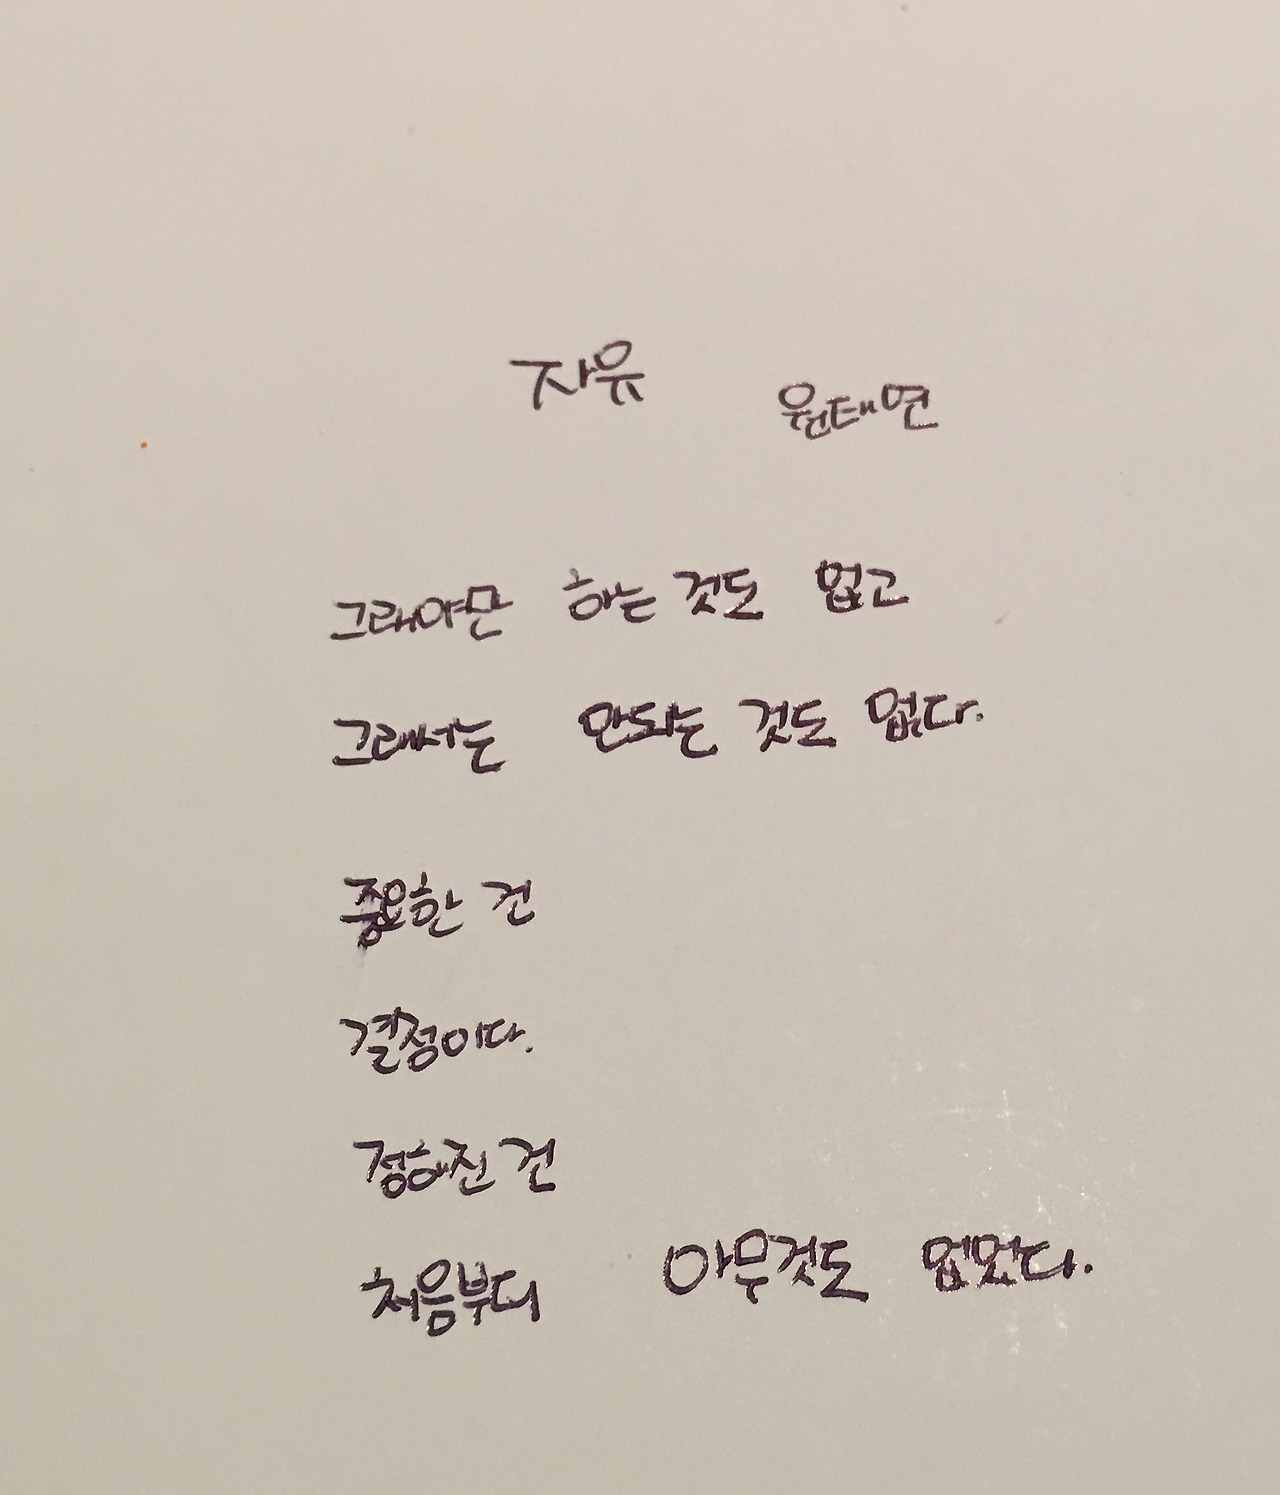 자유 원태연
그래야만 하는 것도 없고
그래서는 안되는 것도 없다.
중요한 건
결정이다.
정해진 건
처음부터 아무것도 없었다.